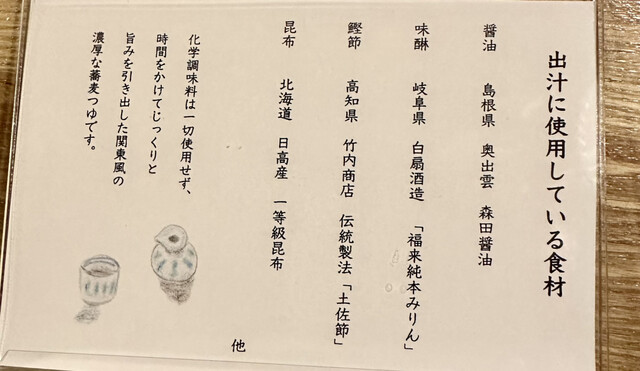 出汁に使用している食材
醤油 島根県 奥出雲 森田醤油
味醂 岐阜県 白扇酒造 「福来純本みりん」
鰹節 高知県 竹内商店 伝統製法「土佐節」
昆布 北海道 日高産 一等級昆布
他
化学調味料は一切使用せず、
時間をかけてじっくりと
旨みを引き出した関東風の
濃厚な蕎麦つゆです。